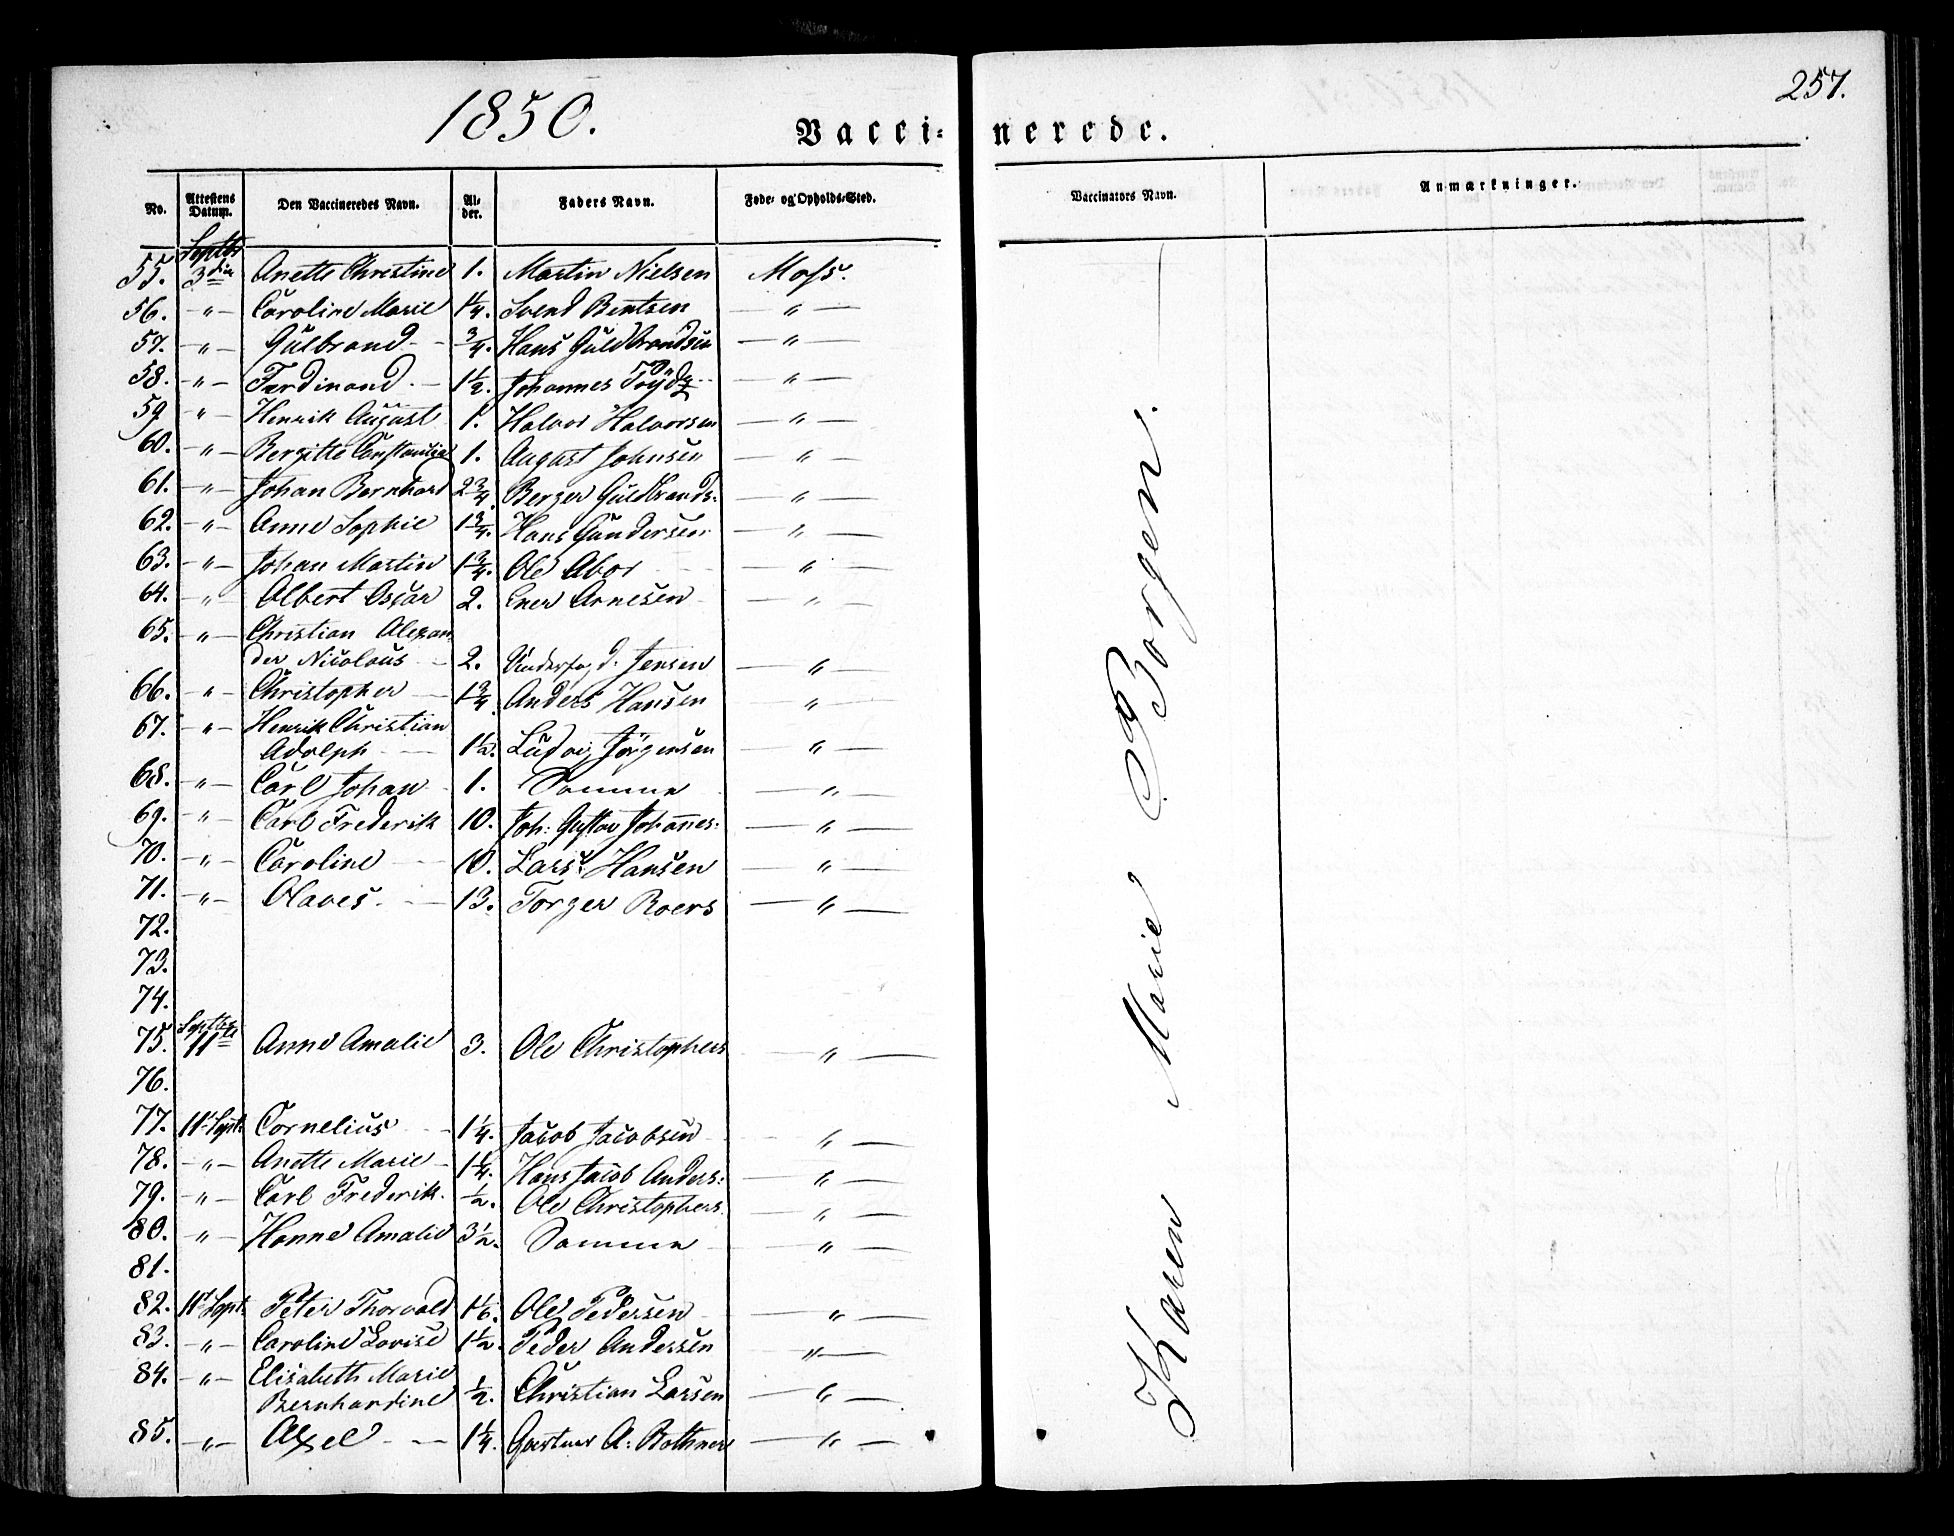 257.
1850.
Vacci- nerede.
No. Attestens Datum. Den Vaccineredes Navn. Al-der. Faders Navn. Føde- og Opholds-Sted. Vaccinators Navn. Anmærkninger.
Septbr
55. 3die Anette Christine 1. Martin Nielsen Moss.
56. -"- Caroline Marie 1¼. Svend Bentsen -"-
57. -"- Gulbrand 3/4. Hans Guldbrandsen -"-
58. -"- Ferdinand 1½. Johannes -"-
59. " Henrik August 1. Halvor Halvorsen -"-
60. -"- Bergitte Constancia 1. August Johnsen -"-
61. -"- Johan Bernhard 2¾. Berger Guldbrands: -"-
62. -"- Anne Sophie 1¾. Hans Gundersen -"-
63. -"- Johan Martin 1¾. Ole Abor -"-
64. " Albert Oscar 2. Ener Arnesen -"-
65. -"- Christian Alexan
der Nicolaus 2. Underfog d. Jensen -"-
66. -"- Christopher 1¾. Anders Hansen -"-
67. -"- Henrik Christian
Adolph 1½. Ludvig Jörgensen -"-
68. -"- Carl Johan 1. Samme -"-
69. -"- Carl Frederik 10. Joh: Gustav Johannes: -"-
70. -"- Caroline 10. Lars Hansen -"-
71. -"- Olaves 13. Torger Roers -"-
72.
73.
74.
Septbr
75. 11te Anne Amalie 3. Ole Christophers -"-
76.
77. 11' Sept: Cornelius 1¼. Jacob Jacobsen -"-
78. -"- Anette Marie 1¼. Hans Jacob Anders: -"-
79. -"- Carl Frederik ½. Ole Christophers. -"-
80. -"- Hanne Amalie 3½. Samme -"-
81.
82. 11' Sept: Peter Thorvald 1⅙. Ole Pedersen -"-
83. -"- Caroline Lovise 1½. Peder Andersen -"-
84. -"- Elisabeth Marie
Bernhardine ½. Christian Larsen -"-
85. -"- Axel 1¼. Gartner A: Bothner -"-
Karen Marie Borgen.